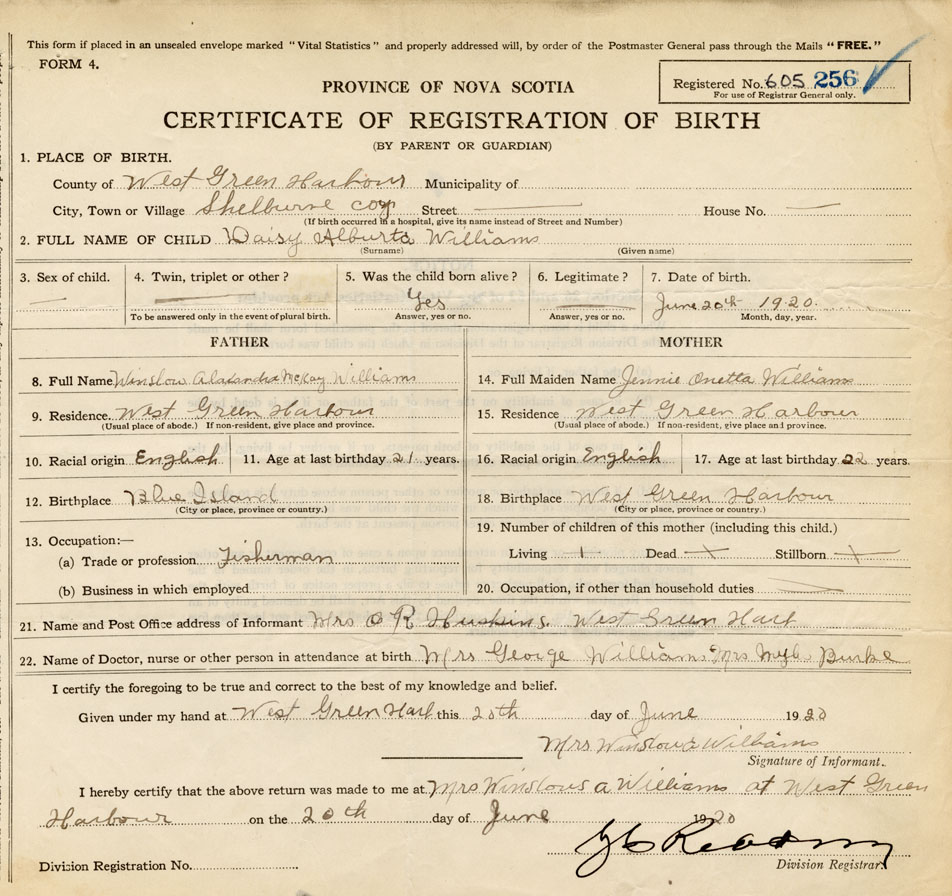 This form if placed in an unsealed envelope marked "Vital Statistics" and properly addressed will, by order of the Postmaster General pass through the Mails "FREE."
FORM 4.
Registered No. 605 256
For use of Registrar General only.
PROVINCE OF NOVA SCOTIA
CERTIFICATE OF REGISTRATION OF BIRTH
(BY PARENT OR GUARDIAN)
1. PLACE OF BIRTH.
County of West Green Harbour Municipality of
City, Town or Village Shelburne coy Street House No.
(If birth occurred in a hospital, give its name instead of Street and Number)
2. FULL NAME OF CHILD Daisy Alburta Williams
(Surname) (Given name)
3. Sex of child. 4. Twin, triplet or other? 5. Was the child born alive? 6. Legitimate? 7. Date of birth.
Yes June 20th 1920.
To be answered only in the event of plural birth. Answer, yes or no. Answer, yes or no. Month, day, year.
FATHER MOTHER
8. Full Name Winslow McKay Williams 14. Full Maiden Name Jennie Onetta Williams
9. Residence. West Green Harbour 15. Residence West Green Harbour
(Usual place of abode.) If non-resident, give place and province. (Usual place of abode.) If non-resident, give place and province.
10. Racial origin English 11. Age at last birthday 21 years. 16. Racial origin English 17. Age at last birthday 22 years.
12. Birthplace Blue Island 18. Birthplace West Green Harbour
(City or place, province or country.) (City or place, province or country.)
19. Number of children of this mother (including this child.)
13. Occupation:—
(a) Trade or profession Fisherman Living 1 Dead Stillborn
(b) Business in which employed 20. Occupation, if other than household duties
21. Name and Post Office address of Informant Mrs C R Huskins West Green Harb
22. Name of Doctor, nurse or other person in attendance at birth Mrs George Williams Mrs Burke
I certify the foregoing to be true and correct to the best of my knowledge and belief.
Given under my hand at West Green Harb this 20th day of June 1920
Mrs Winslow a Williams
Signature of Informant.
I hereby certify that the above return was made to me at Mrs Winslows a Williams at West Green
Harbour on the 20th day of June 1920
Division Registration No. Division Registrar.